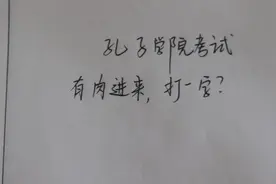 孔子学院考试
有肉进来，打一字？